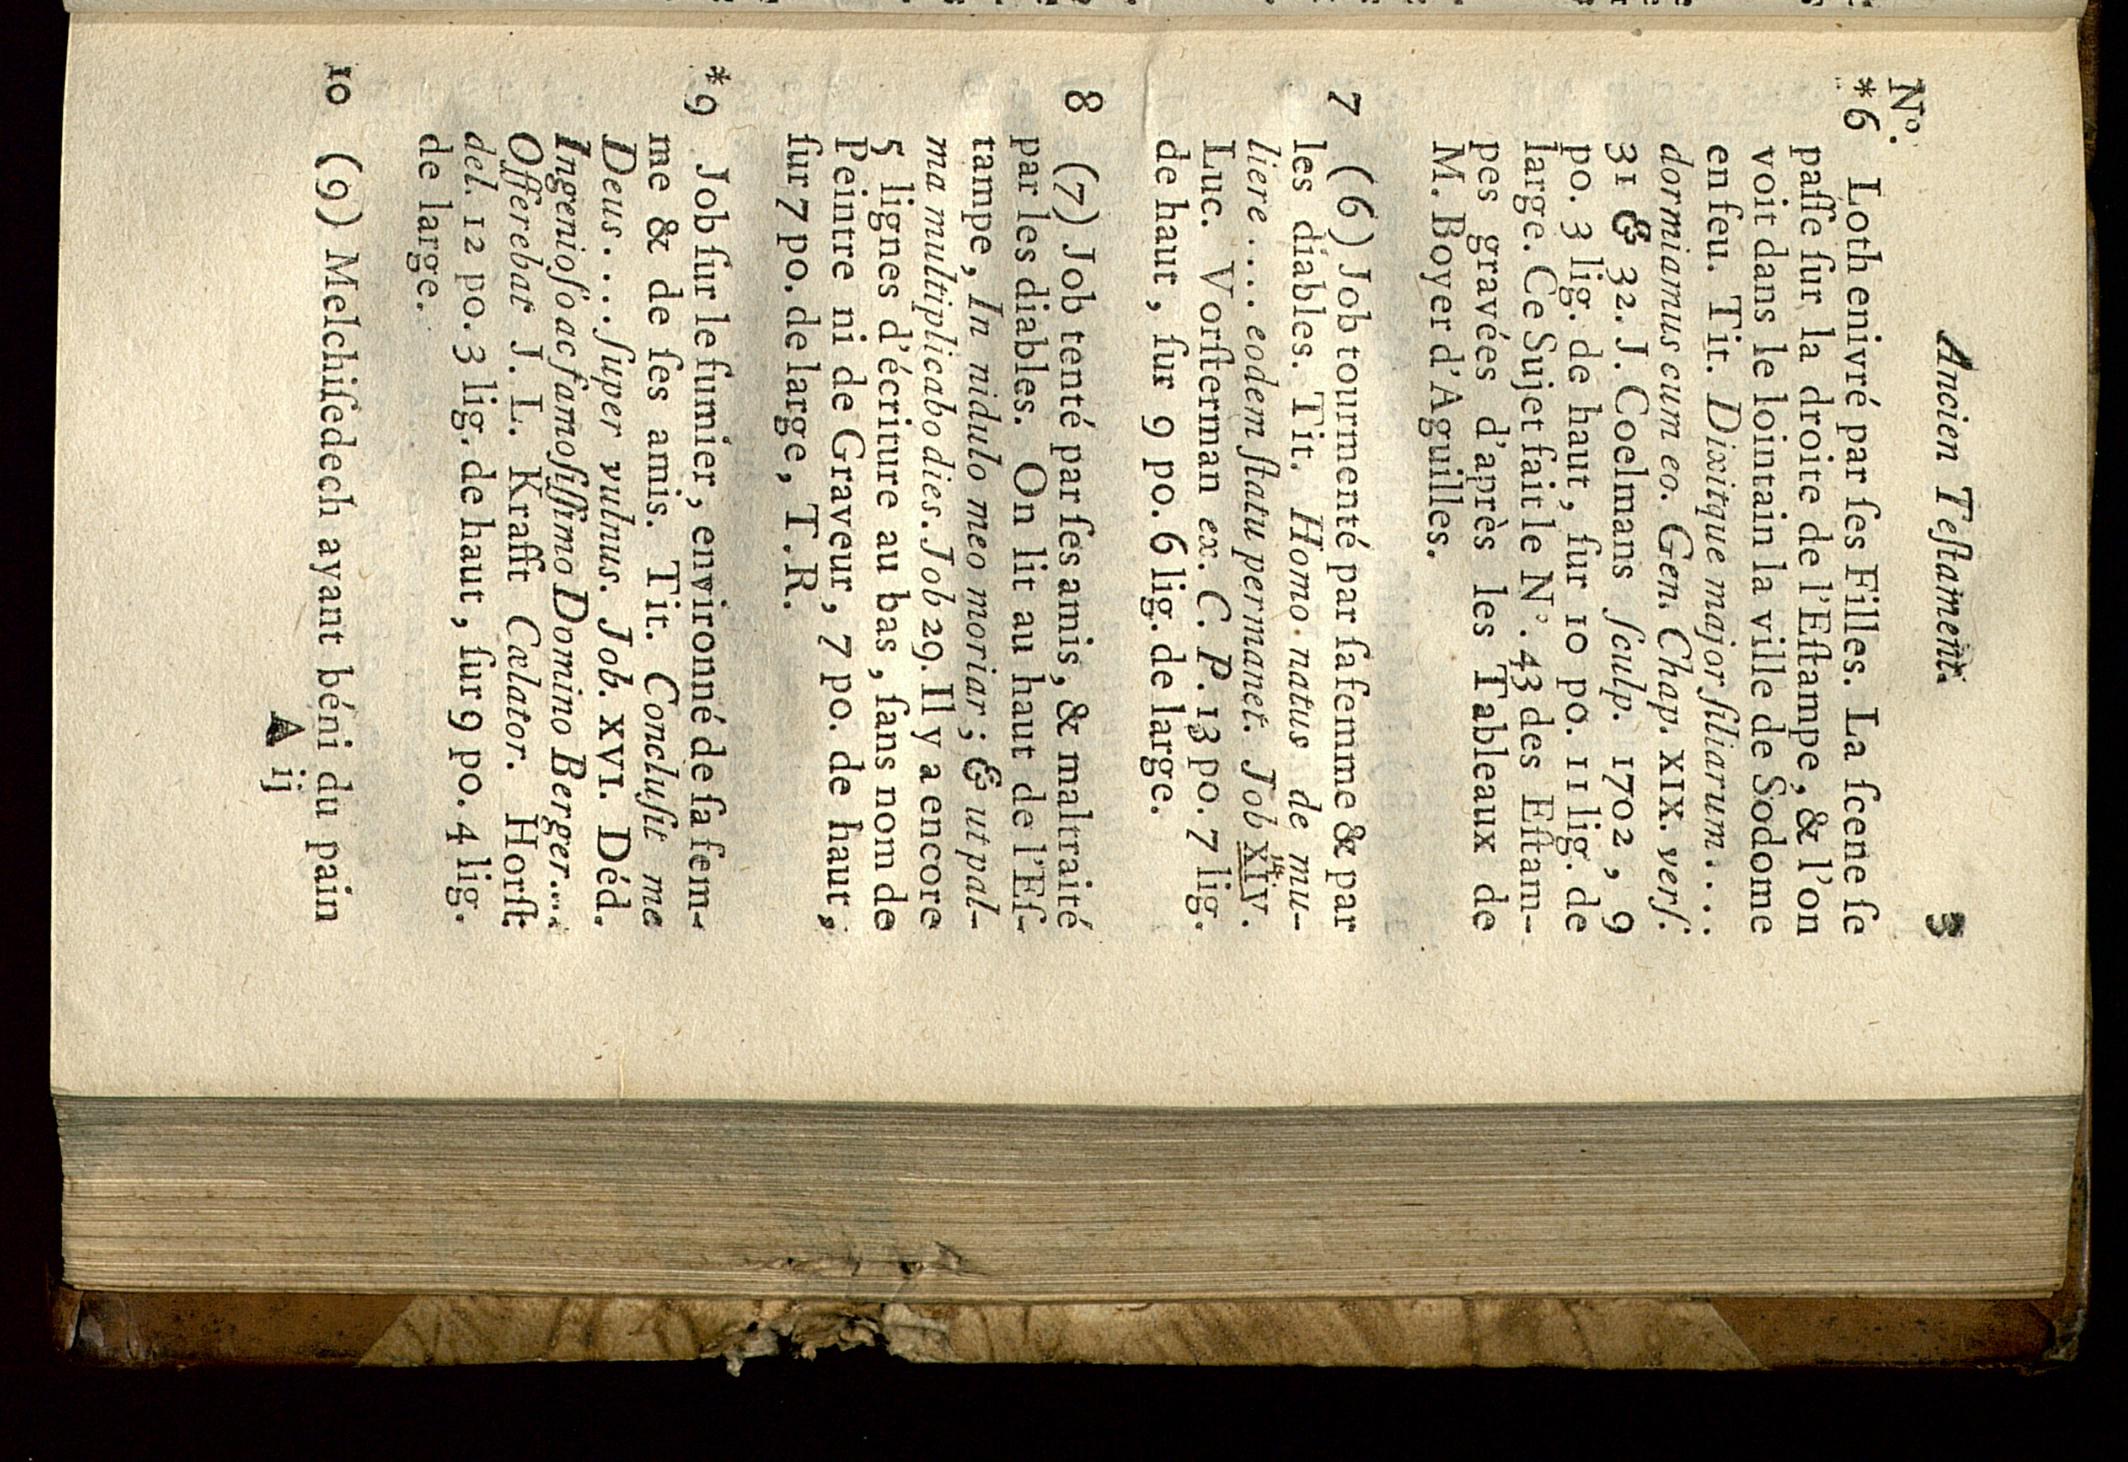 Ancien Teſtament. 3
N°.
*6 Loth enivré par ſes Filles. La ſcene ſe
paſſe ſur la droite de l'Eſtampe, & l'on
voit dans le lointain la ville de Sodome
en feu. Tit. Dixitque major filiarum....
dormiamus cum eo. Gen. Chap. XIX. verſ.
31 & 32. J. Coelmans ſculp. 1702, 9
po. 3 lig. de haut, ſur 10 po. 11 lig. de
large. Ce Sujet fait le N°. 43 des Eſtam-
pes gravées d'après les Tableaux de
M. Boyer d'Aguilles.
7 (6) Job tourmenté par ſa femme & par
les diables. Tit. Homo natus de mu-
liere.... eodem ſtatu permanet. Job XIV.
Luc. Vorſterman ex. C. P. 13 po. 7 lig.
de haut, ſur 9 po. 6 lig. de large.
8 (7) Job tenté par ſes amis, & maltraité
par les diables. On lit au haut de l'Eſ-
tampe, In nidulo meo moriar; & ut pal-
ma multiplicabo dies. Job 29. Il y a encore
5 lignes d'écriture au bas, ſans nom de
Peintre ni de Graveur, 7 po. de haut,
ſur 7 po. de large, T. R.
*9 Job ſur le fumier, environné de ſa fem-
me & de ſes amis. Tit. Concluſit me
Deus.... ſuper vulnus. Job. XVI. Déd.
Ingenioſo ac famoſiſſimo Domino Berger....
Offerebat J. L. Krafft Cælator. Horſt.
del. 12 po. 3 lig. de haut, ſur 9 po. 4 lig.
de large.
10 (9) Melchiſedech ayant béni du pain
A ij